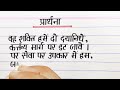 प्रार्थना
वह शक्ति हमें दो दयानिधे,
कर्तव्य मार्ग पर डट जावें ।
पर सेवा पर उपकार में हम,